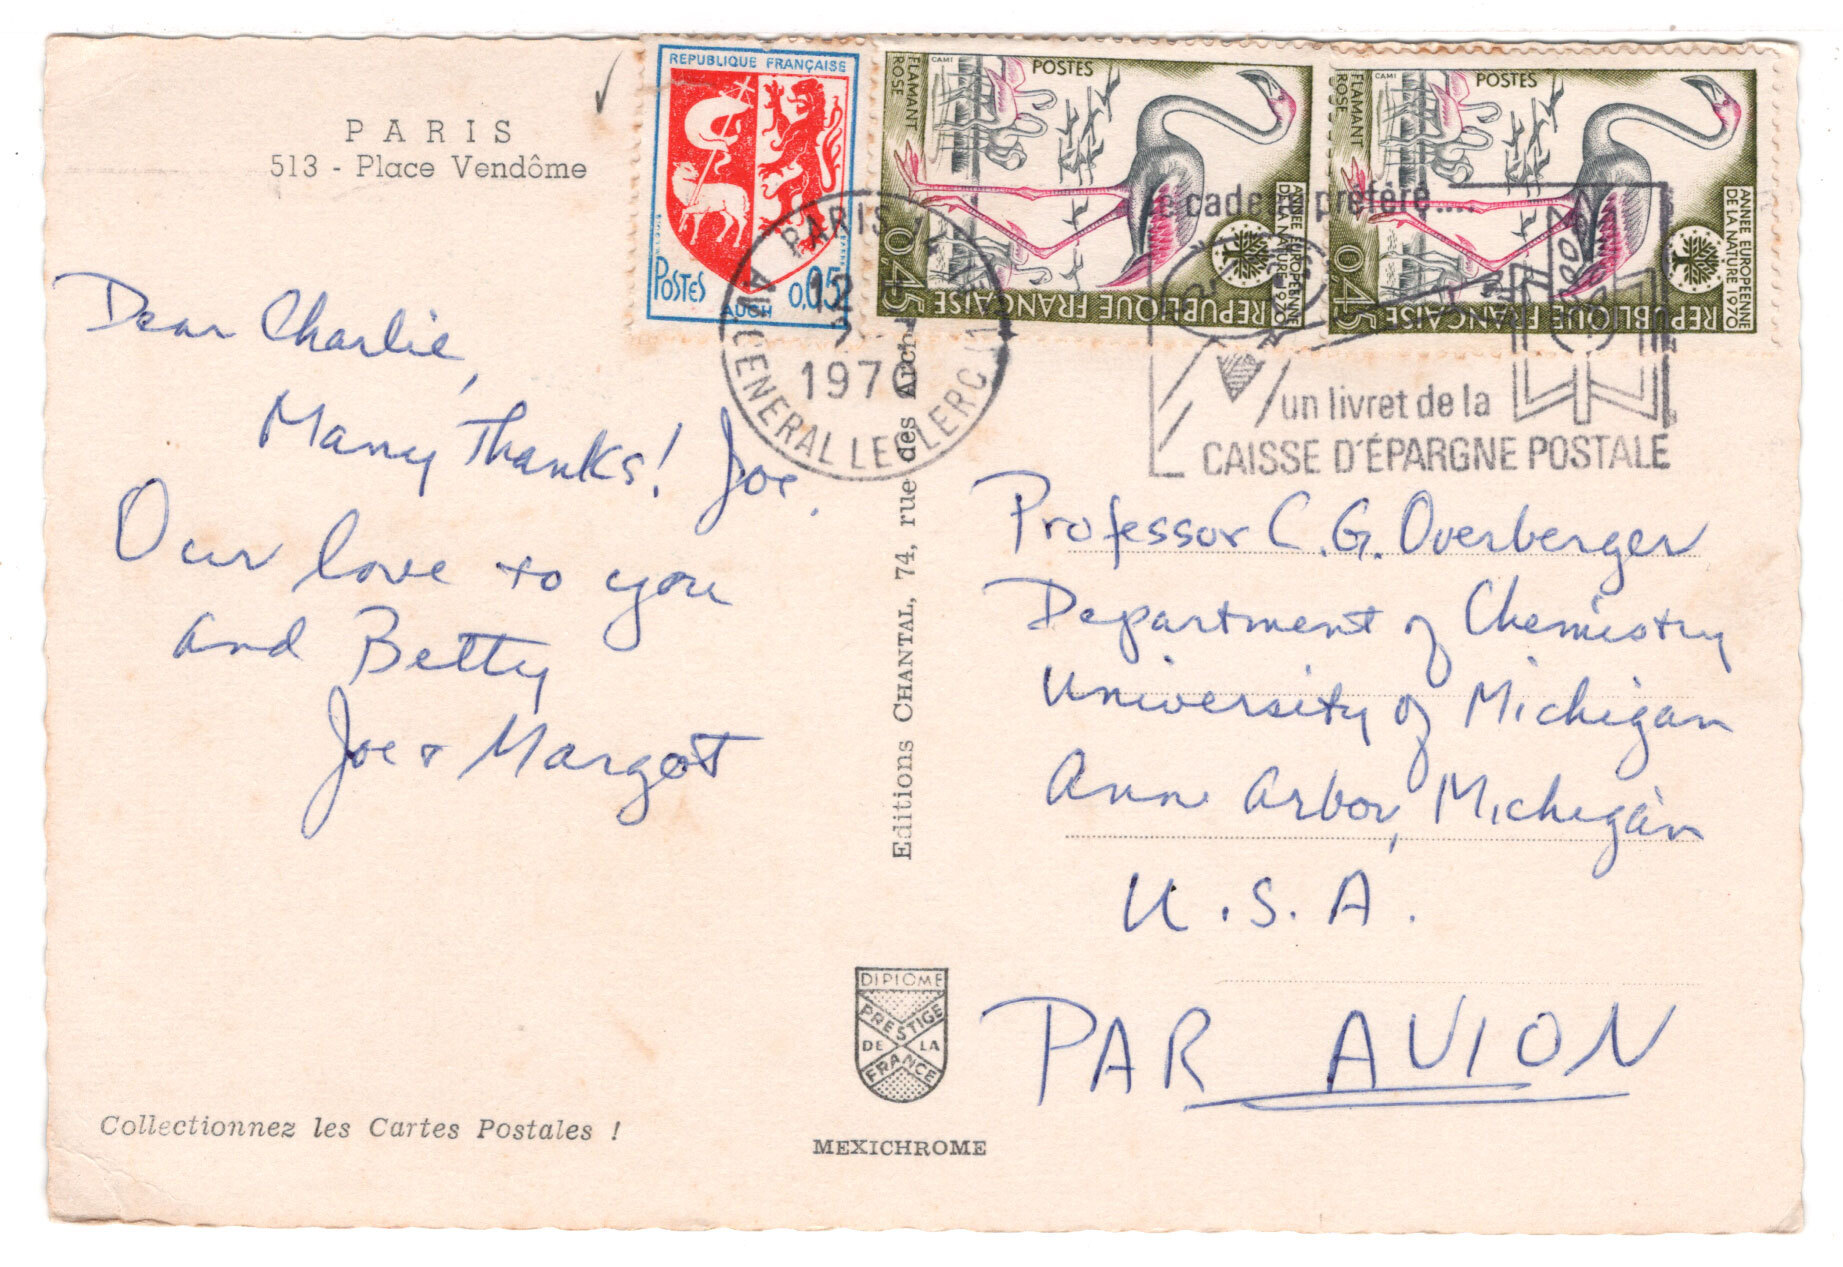 PARIS
513 - Place Vendôme
REPUBLIQUE FRANÇAISE
POSTES
0,05
AUCH
FLAMANT
ROSE
CAMI
POSTES
ANNÉE EUROPÉENNE
DE LA NATURE 1970
0,45
REPUBLIQUE FRANÇAISE
FLAMANT
ROSE
CAMI
POSTES
ANNÉE EUROPÉENNE
DE LA NATURE 1970
0,45
REPUBLIQUE FRANÇAISE
PARIS
1970
GENERAL LECLERC
cadeau préféré....
un livret de la
CAISSE D'ÉPARGNE POSTALE
Dear Charlie,
Many Thanks! Joe.
Our love to you
and Betty
Joe + Margot
Editions CHANTAL, 74, rue des Arch
Professor C.G. Overberger
Department of Chemistry
University of Michigan
Ann Arbor, Michigan
U.S.A.
PAR AVION
DIPLOME
PRESTIGE
DE LA
FRANCE
Collectionnez les Cartes Postales !
MEXICHROME